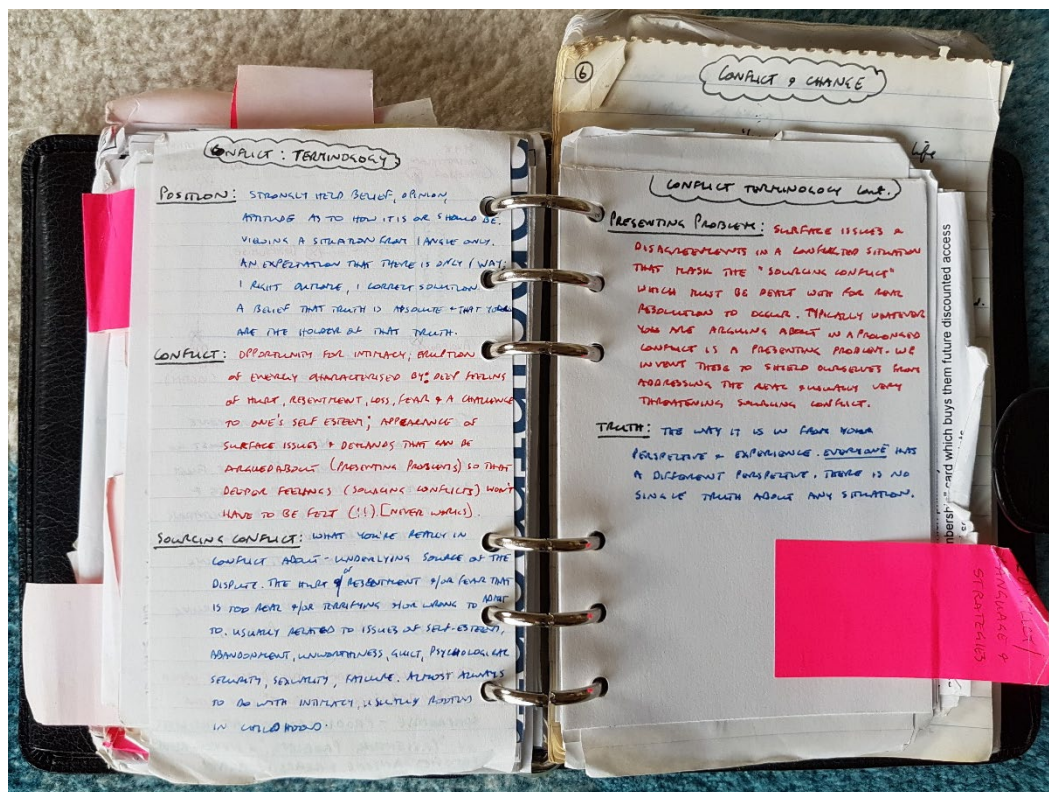 CONFLICT : TERMINOLOGY
POSITION : STRONGLY HELD BELIEF, OPINION
ATTITUDE AS TO HOW IT IS OR SHOULD BE.
VIEWING A SITUATION FROM 1 ANGLE ONLY.
AN EXPECTATION THAT THERE IS ONLY 1 WAY;
1 RIGHT OUTCOME, 1 CORRECT SOLUTION.
A BELIEF THAT TRUTH IS ABSOLUTE & THAT YOU
ARE THE HOLDER OF THAT TRUTH.
CONFLICT : OPPORTUNITY FOR INTIMACY; ERUPTION
OF ENERGY CHARACTERISED BY: DEEP FEELING
OF HURT, RESENTMENT, LOSS, FEAR & A CHALLENGE
TO ONE'S SELF ESTEEM; APPEARANCE OF
SURFACE ISSUES & DEMANDS THAT CAN BE
ARGUED ABOUT (PRESENTING PROBLEMS) SO THAT
DEEPER FEELINGS (SOURCING CONFLICTS) WON'T
HAVE TO BE FELT (!!) [NEVER WORKS].
SOURCING CONFLICT : WHAT YOU'RE REALLY IN
CONFLICT ABOUT - UNDERLYING SOURCE OF THE
DISPUTE. THE HURT &/or RESENTMENT &/OR FEAR THAT
IS TOO REAL &/OR TERRIFYING &/OR WRONG TO ADMIT
TO. USUALLY RELATED TO ISSUES OF SELF-ESTEEM,
ABANDONMENT, UNWORTHINESS, GUILT, PSYCHOLOGICAL
SECURITY, SEXUALITY, FAILURE. ALMOST ALWAYS
TO DO WITH INTIMACY, USUALLY ROOTED
IN CHILDHOOD.
6
CONFLICT & CHANGE
Life
CONFLICT TERMINOLOGY Cont.
PRESENTING PROBLEMS : SURFACE ISSUES &
DISAGREEMENTS IN A CONFLICTED SITUATION
THAT MASK THE "SOURCING CONFLICT"
WHICH MUST BE DEALT WITH FOR REAL
RESOLUTION TO OCCUR. TYPICALLY WHATEVER
YOU ARE ARGUING ABOUT IN A PROLONGED
CONFLICT IS A PRESENTING PROBLEM. WE
INVENT THESE TO SHIELD OURSELVES FROM
ADDRESSING THE REAL & USUALLY VERY
THREATENING SOURCING CONFLICT.
TRUTH : THE WAY IT IS IN FROM YOUR
PERSPECTIVE & EXPERIENCE. EVERYONE HAS
A DIFFERENT PERSPECTIVE. THERE IS NO
SINGLE TRUTH ABOUT ANY SITUATION.
card which buys them future discounted access
CONFLICT /
LANGUAGE &
STRATEGIES